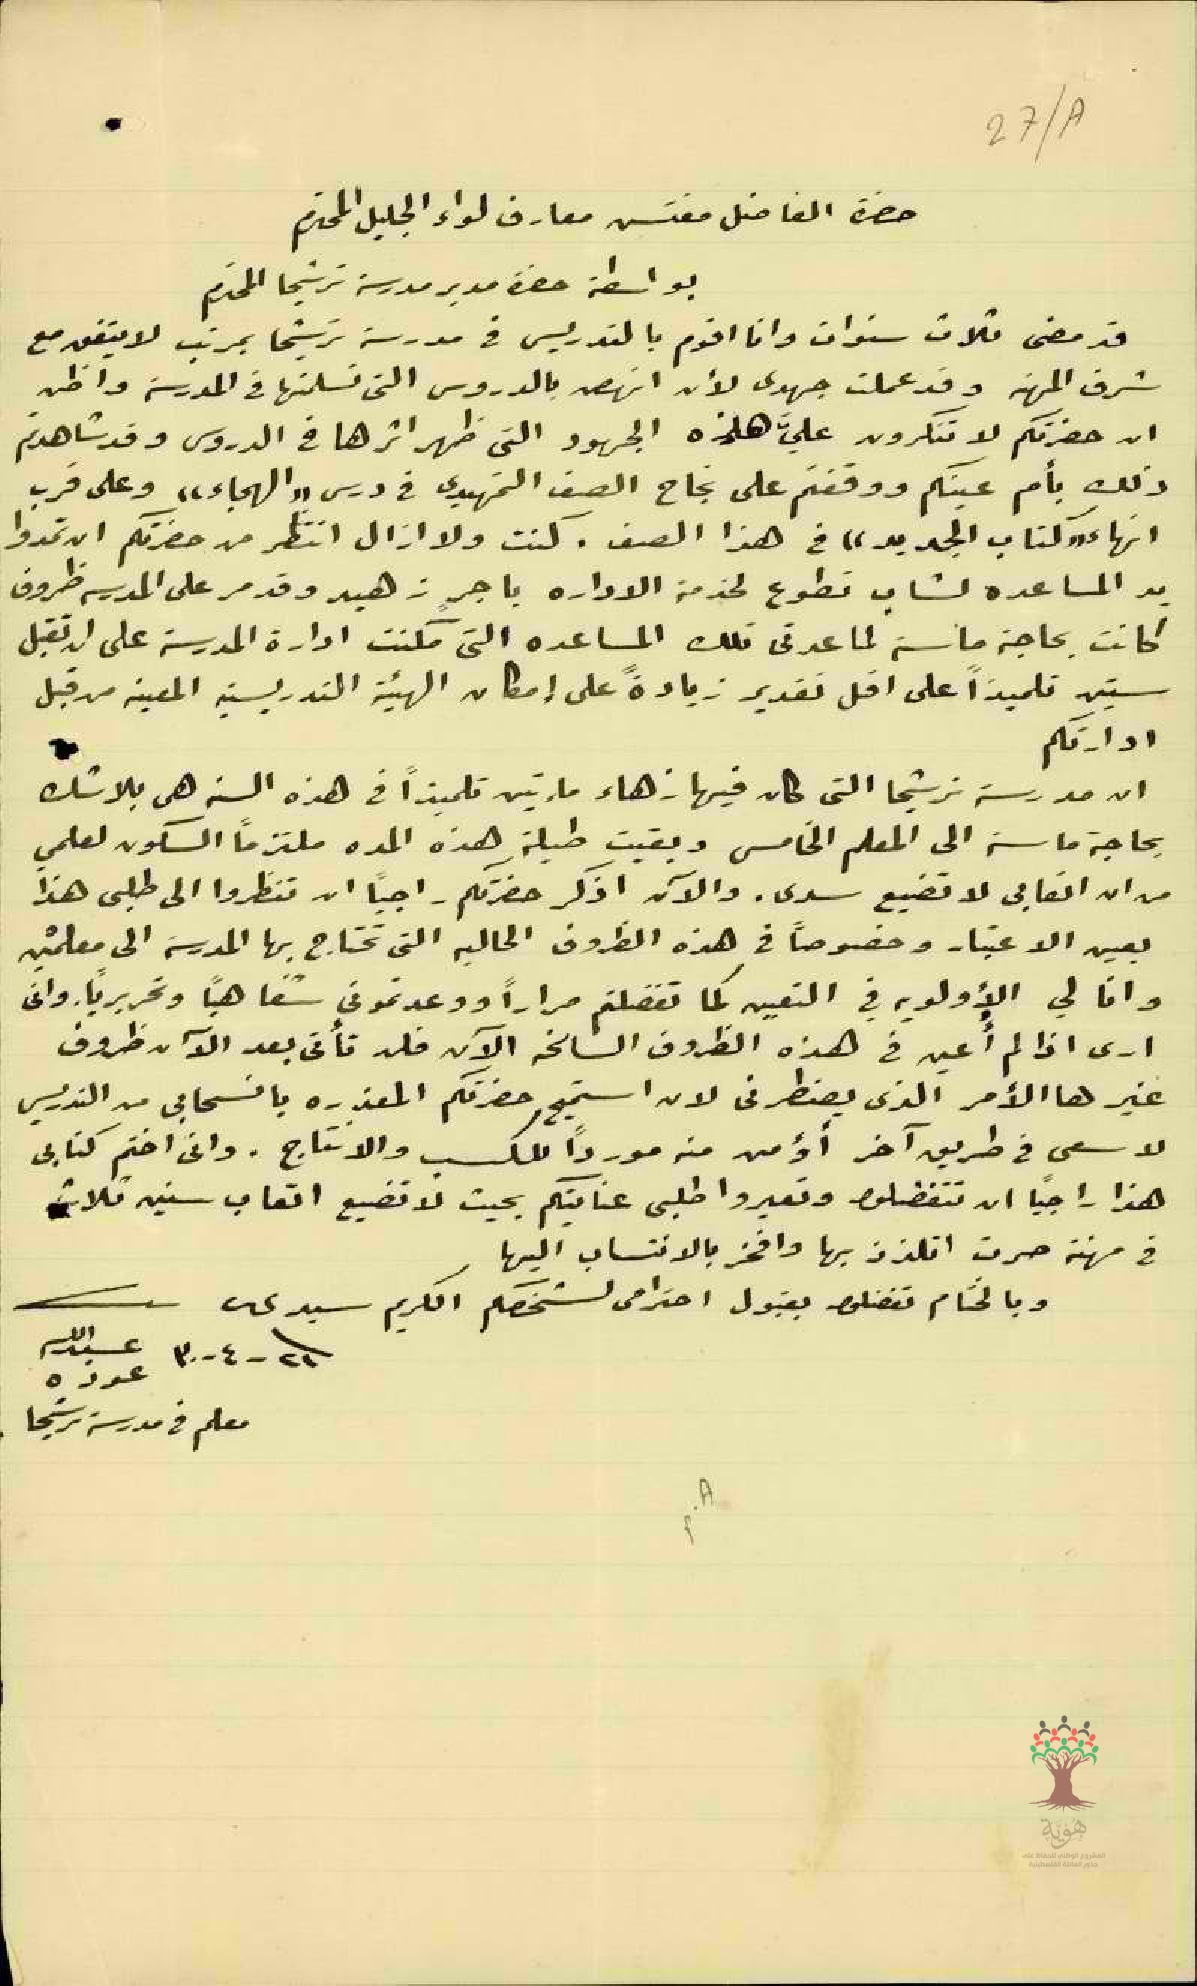 27/A
حضرة الفاضل مفتش معارف لواء الجليل المحترم
بواسطة حضرة مدير مدرسة ترشيحا المحترم
قد مضى ثلاث سنوات وانا اقوم بالتدريس في مدرسة ترشيحا بمرتب لا يتفق مع
شرف المهنه وقد عملت جهدى لأن انهض بالدروس التى تسلمتها في المدرسة واظن
ان حضرتكم لا تنكرون عليّ هذه الجهود التى ظهر اثرها في الدروس وقد شاهدتم
ذلك بأم عينكم ووقفتم على نجاح الصف التمهيدى في درس "الهجاء" وعلى قرب
انهاء "كتاب الجديد" في هذا الصف . كنت ولا ازال انتظر من حضرتكم ان تمدوا
يد المساعده لشاب تطوع لخدمة الاداره باجرٍ زهيد وقد مر على المدرسه ظروف
كانت بحاجة ماسة لمساعدتى تلك المساعده التى مكنت ادارة المدرسة على ان تقبل
ستين تلميذاً على اقل تقدير زيادةً على إمكان الهيئة التدريسية المعينه من قبل
ادارتكم
ان مدرسة ترشيحا التى كان فيها زهاء مايتين تلميذاً في هذه السنه هى بلا شك
بحاجة ماسة الى المعلم الخامس وبقيت طيلة هذه المده ملتزماً السكون لعلمي
من ان اتعابى لا تضيع سدى. والآن اذكر حضرتكم راجياً ان تنظروا الى طلبى هذا
بعين الاعتبار وخصوصاً في هذه الظروف الحاليه التى تحتاج بها المدرسة الى معلمَين
وانا لي الأولويه في التعيين كما تفضلتم مراراً ووعدتمونى شفاهياً وتحريرياً، وانى
ارى اذا لم أُعين في هذه الظروف السانحه الآن فلن تأتى بعد الآن ظروف
غيرها الأمر الذى يضطرنى لان استميح حضرتكم المعذره بانسحابى من التدريس
لاسعى في طريق آخر أؤمن منه مورداً للكسب والانتاج . وانى اختم كتابى
هذا راجياً ان تتفضلوا وتعيروا طلبى عنايتكم بحيث لا تضيع اتعاب سنين ثلاث
في مهنة صرت اتلذذ بها وافخر بالانتساب اليها
وبالختام تفضلوا بقبول احترامى لشخصكم الكريم سيدى
٣٠-٤-
عبدالله
عوده
معلم في مدرسة ترشيحا
P.A
هوية
المشروع الوطني للحفاظ على
جذور العائلة الفلسطينية